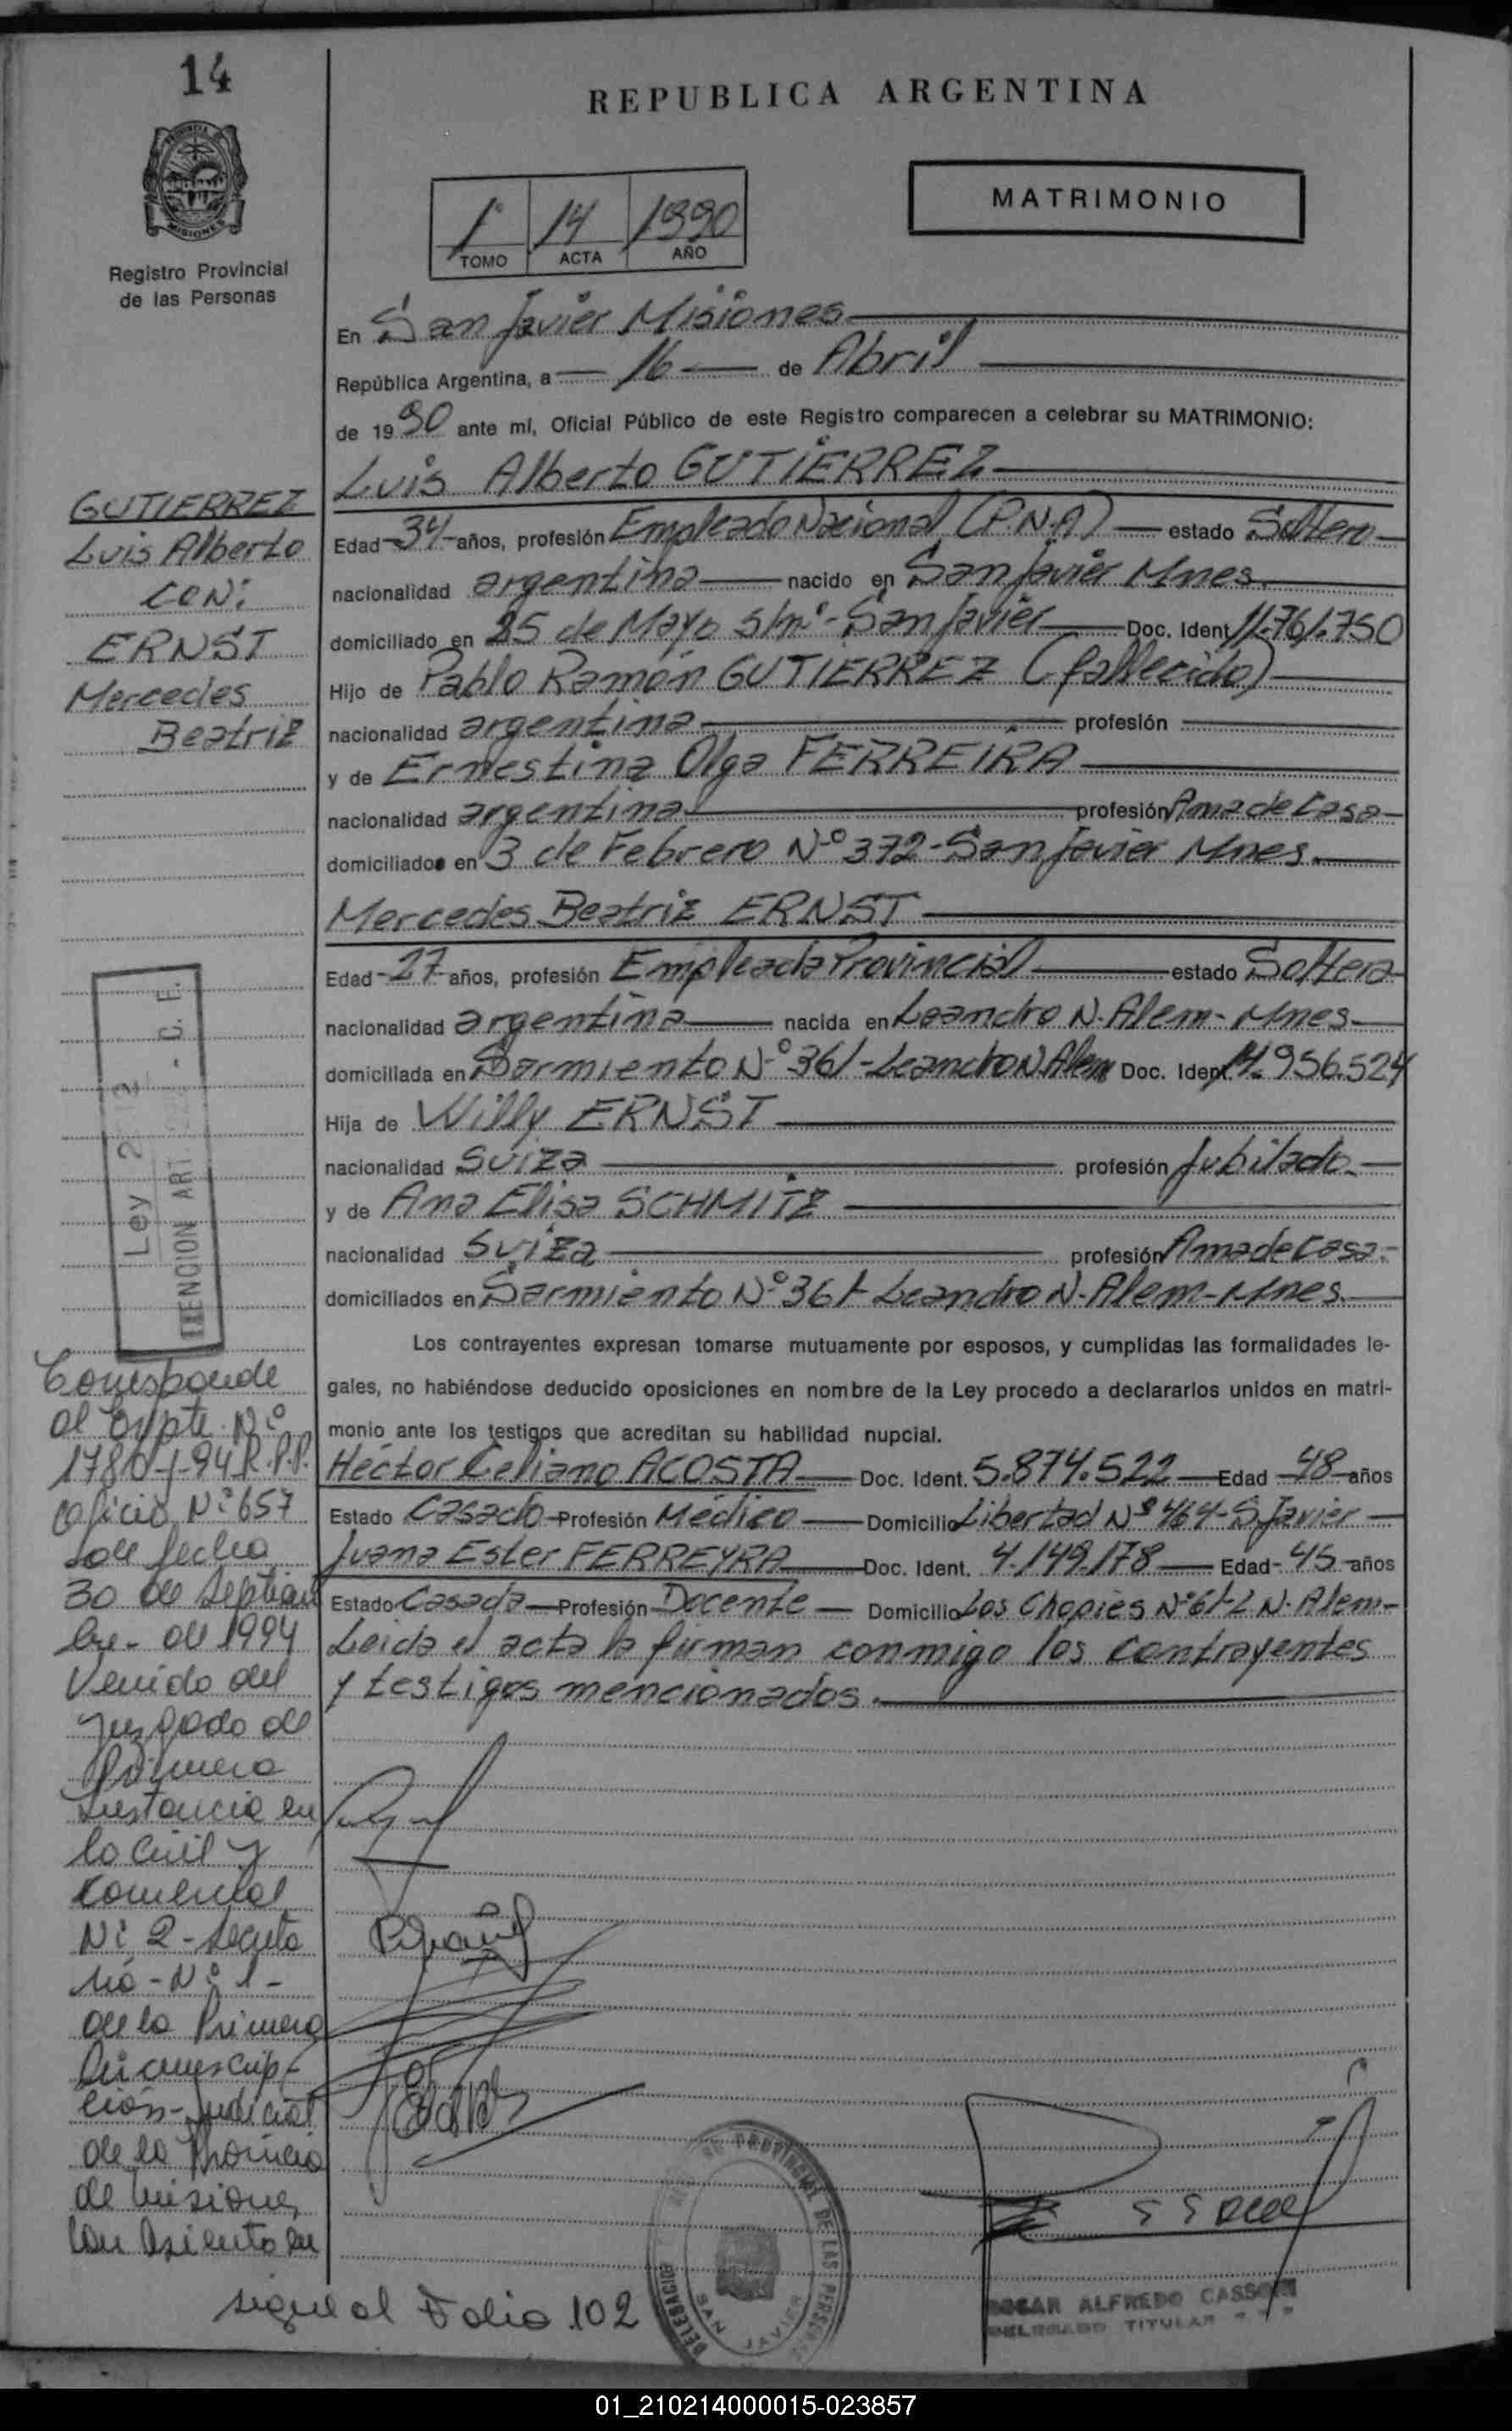 14
REPUBLICA ARGENTINA
PROVINCIA DE
MISIONES
Registro Provincial
de las Personas
1° 14 1990
TOMO ACTA AÑO
MATRIMONIO
En San Javier Misiones
República Argentina, a 16 de Abril
de 1990 ante mí, Oficial Público de este Registro comparecen a celebrar su MATRIMONIO:
Luis Alberto GUTIERREZ
Edad 34 años, profesión Empleado Nacional (P.N.A) estado Soltero
nacionalidad argentina nacido en San Javier Mnes.
domiciliado en 25 de Mayo s/n° - San Javier Doc. Ident 11.761.750
Hijo de Pablo Ramón GUTIERREZ (fallecido)
nacionalidad argentina profesión
y de Ernestina Olga FERREIRA
nacionalidad argentina profesión Ama de Casa
domiciliados en 3 de Febrero N° 372 - San Javier Mnes.
Mercedes Beatriz ERNST
Edad 27 años, profesión Empleada Provincial estado Soltera
nacionalidad argentina nacida en Leandro N. Alem - Mnes
domiciliada en Sarmiento N° 361 - Leandro N Alem Doc. Ident. 14.956.524
Hija de Willy ERNST
nacionalidad Suiza profesión Jubilado
y de Ana Elisa SCHMITZ
nacionalidad Suiza profesión Ama de Casa
domiciliados en Sarmiento N° 361 Leandro N. Alem - Mnes.
Los contrayentes expresan tomarse mutuamente por esposos, y cumplidas las formalidades le-
gales, no habiéndose deducido oposiciones en nombre de la Ley procedo a declararlos unidos en matri-
monio ante los testigos que acreditan su habilidad nupcial.
Héctor Celiano ACOSTA Doc. Ident. 5.874.522 Edad 48 años
Estado Casado Profesión Médico Domicilio Libertad N° 464 - S. Javier
Juana Ester FERREYRA Doc. Ident. 4.149.178 Edad 45 años
Estado Casada Profesión Docente Domicilio Los Chopies N° 61 - L N. Alem
Leida el acta la firman conmigo los contrayentes
y testigos mencionados.
GUTIERREZ
Luis Alberto
CON:
ERNST
Mercedes
Beatriz
Ley 2
EXENCION ART. - C. F.
Corresponde
al Expte. N°
1780-J-94 R.P.P.
Oficio N° 657
de fecha
30 de Septiem
bre de 1994
Venido del
Juzgado de
Primera
Instancia en
lo Civil y
Comercial
N° 2 - Secreta
ría - N° 1 -
de la Primera
Circunscrip
ción - Judicial
de la Provincia
de Misiones
con Asiento en
sigue al Folio 102
PROVINCIAL DE LAS PERSONAS
DELEGACION
SAN JAVIER
OSCAR ALFREDO CASSONI
DELEGADO TITULAR
01_210214000015-023857